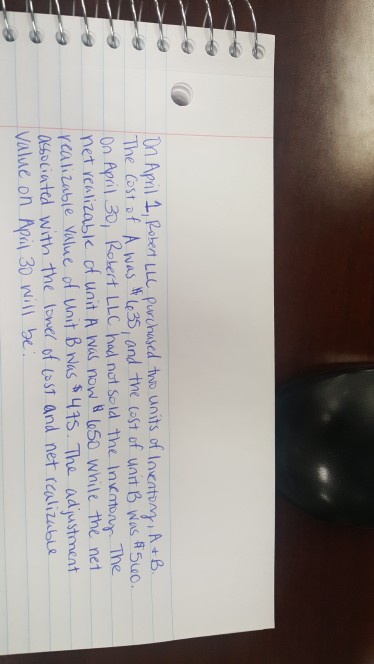 On April 1, Robert LLC purchased two units of Inventory, A + B.
The cost of A was $635, and the cost of unit B was $560.
On April 30, Robert LLC had not sold the Inventory. The
net realizable of unit A was now $650 while the net
realizable value of unit B was $475. The adjustment
associated with the lower of cost and net realizable
value on April 30 will be: